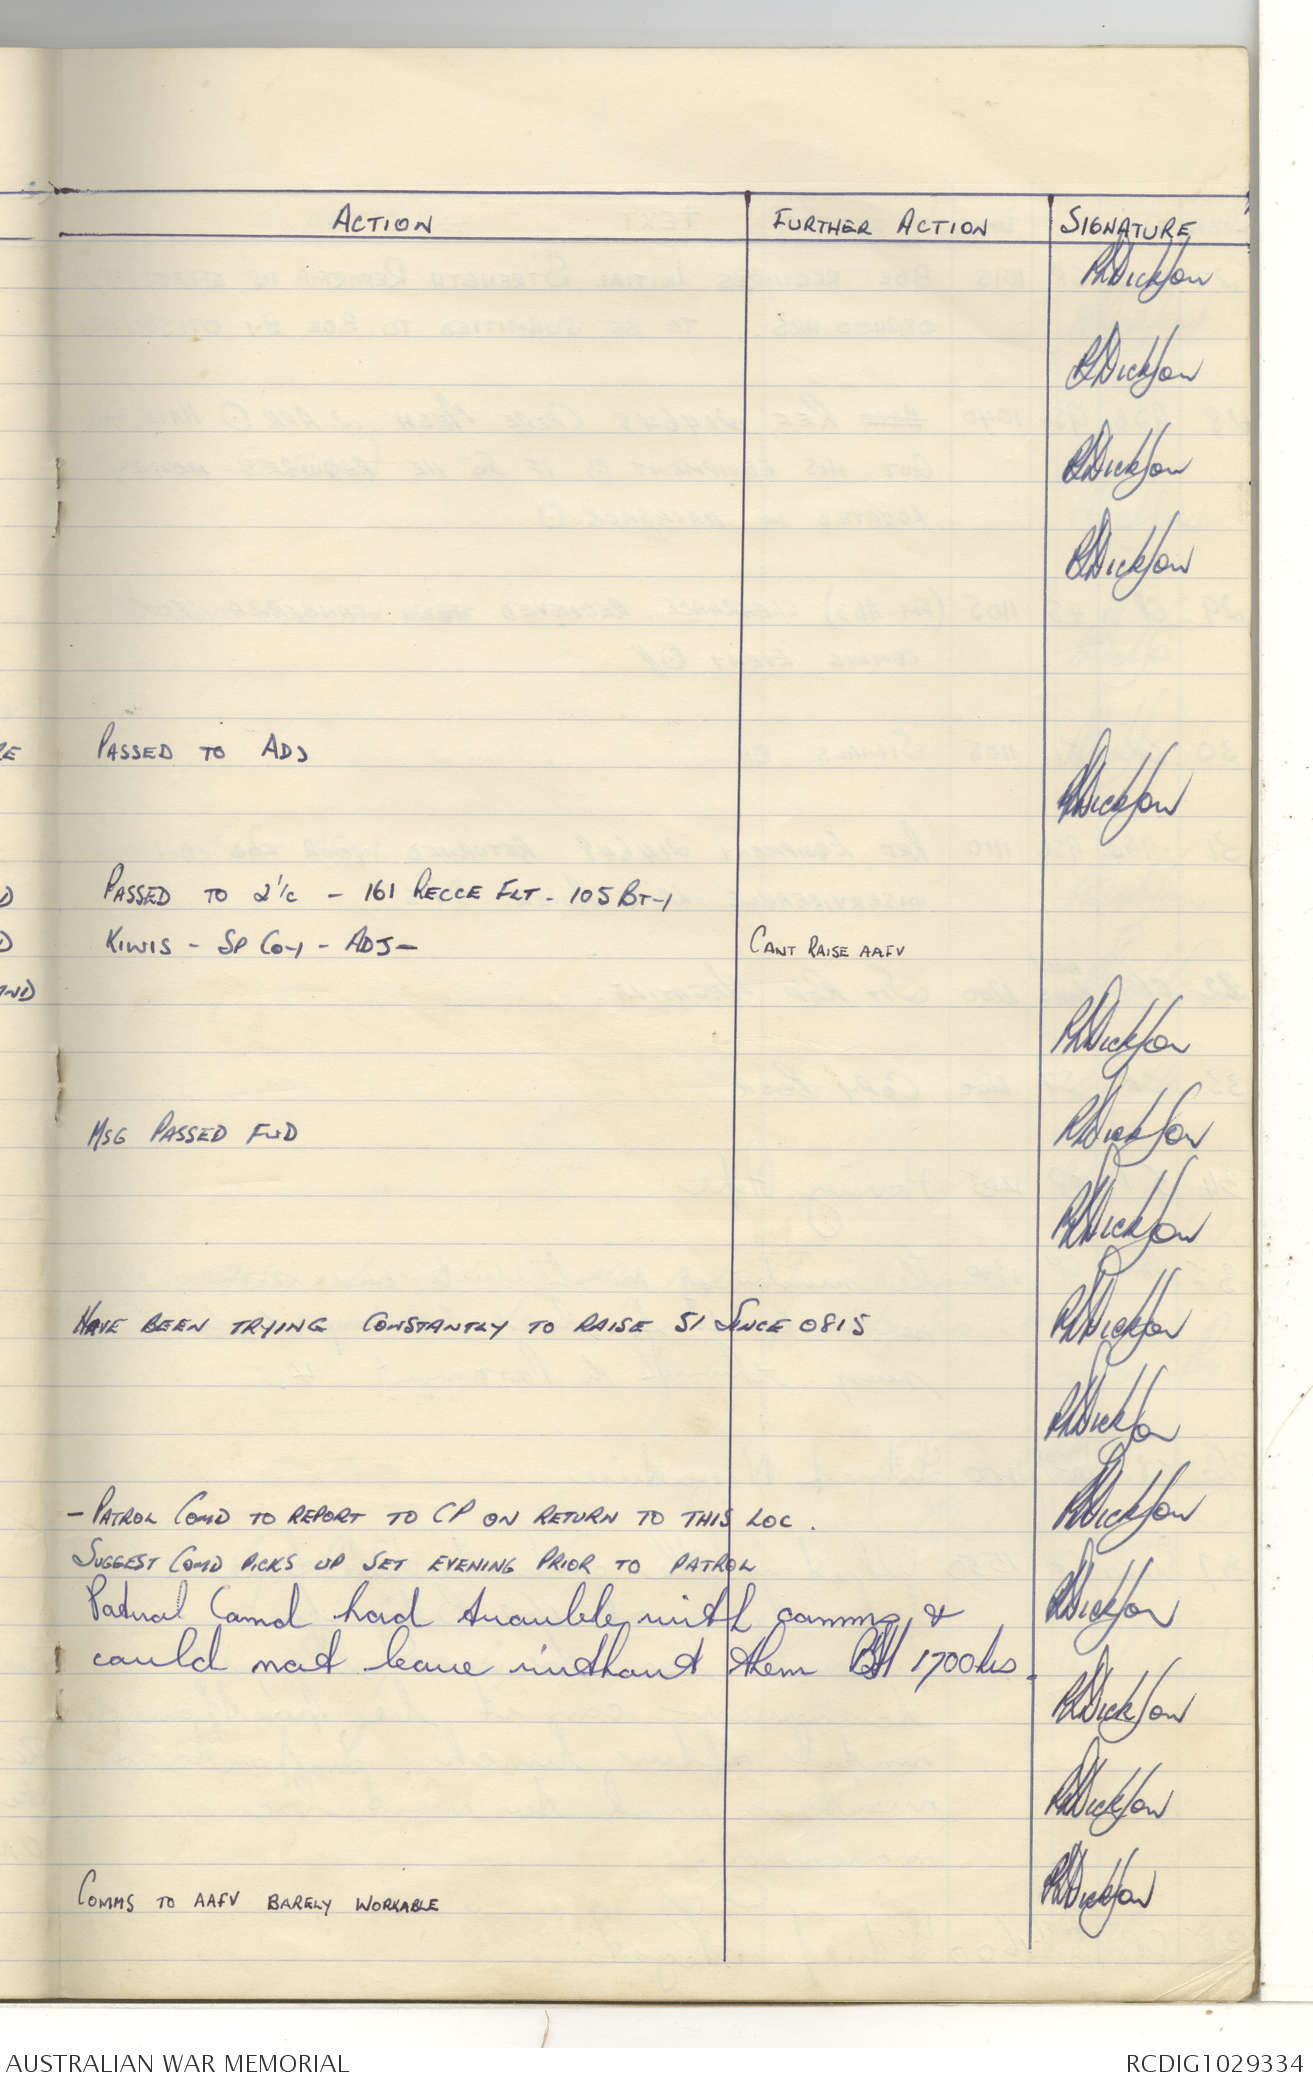 ACTION FURTHER ACTION SIGNATURE
RLDickson
RLDickson
RLDickson
RLDickson
RE PASSED TO ADJ
RLDickson
D PASSED TO 2'/C - 161 RECCE FLT - 105 BTY
D KIWIS - SP COY - ADJ - CANT RAISE AAFV
AND
RLDickson
MSG PASSED FWD RLDickson
RLDickson
HAVE BEEN TRYING CONSTANTLY TO RAISE 51 SINCE 0815 RLDickson
RLDickson
- PATROL COMD TO REPORT TO CP ON RETURN TO THIS LOC. RLDickson
SUGGEST COMD PICKS UP SET EVENING PRIOR TO PATROL
Patrol Comd had trouble with comms, & RLDickson
could not leave without them 1700hrs.
RLDickson
RLDickson
COMMS TO AAFV BARELY WORKABLE RLDickson
AUSTRALIAN WAR MEMORIAL RCDIG1029334